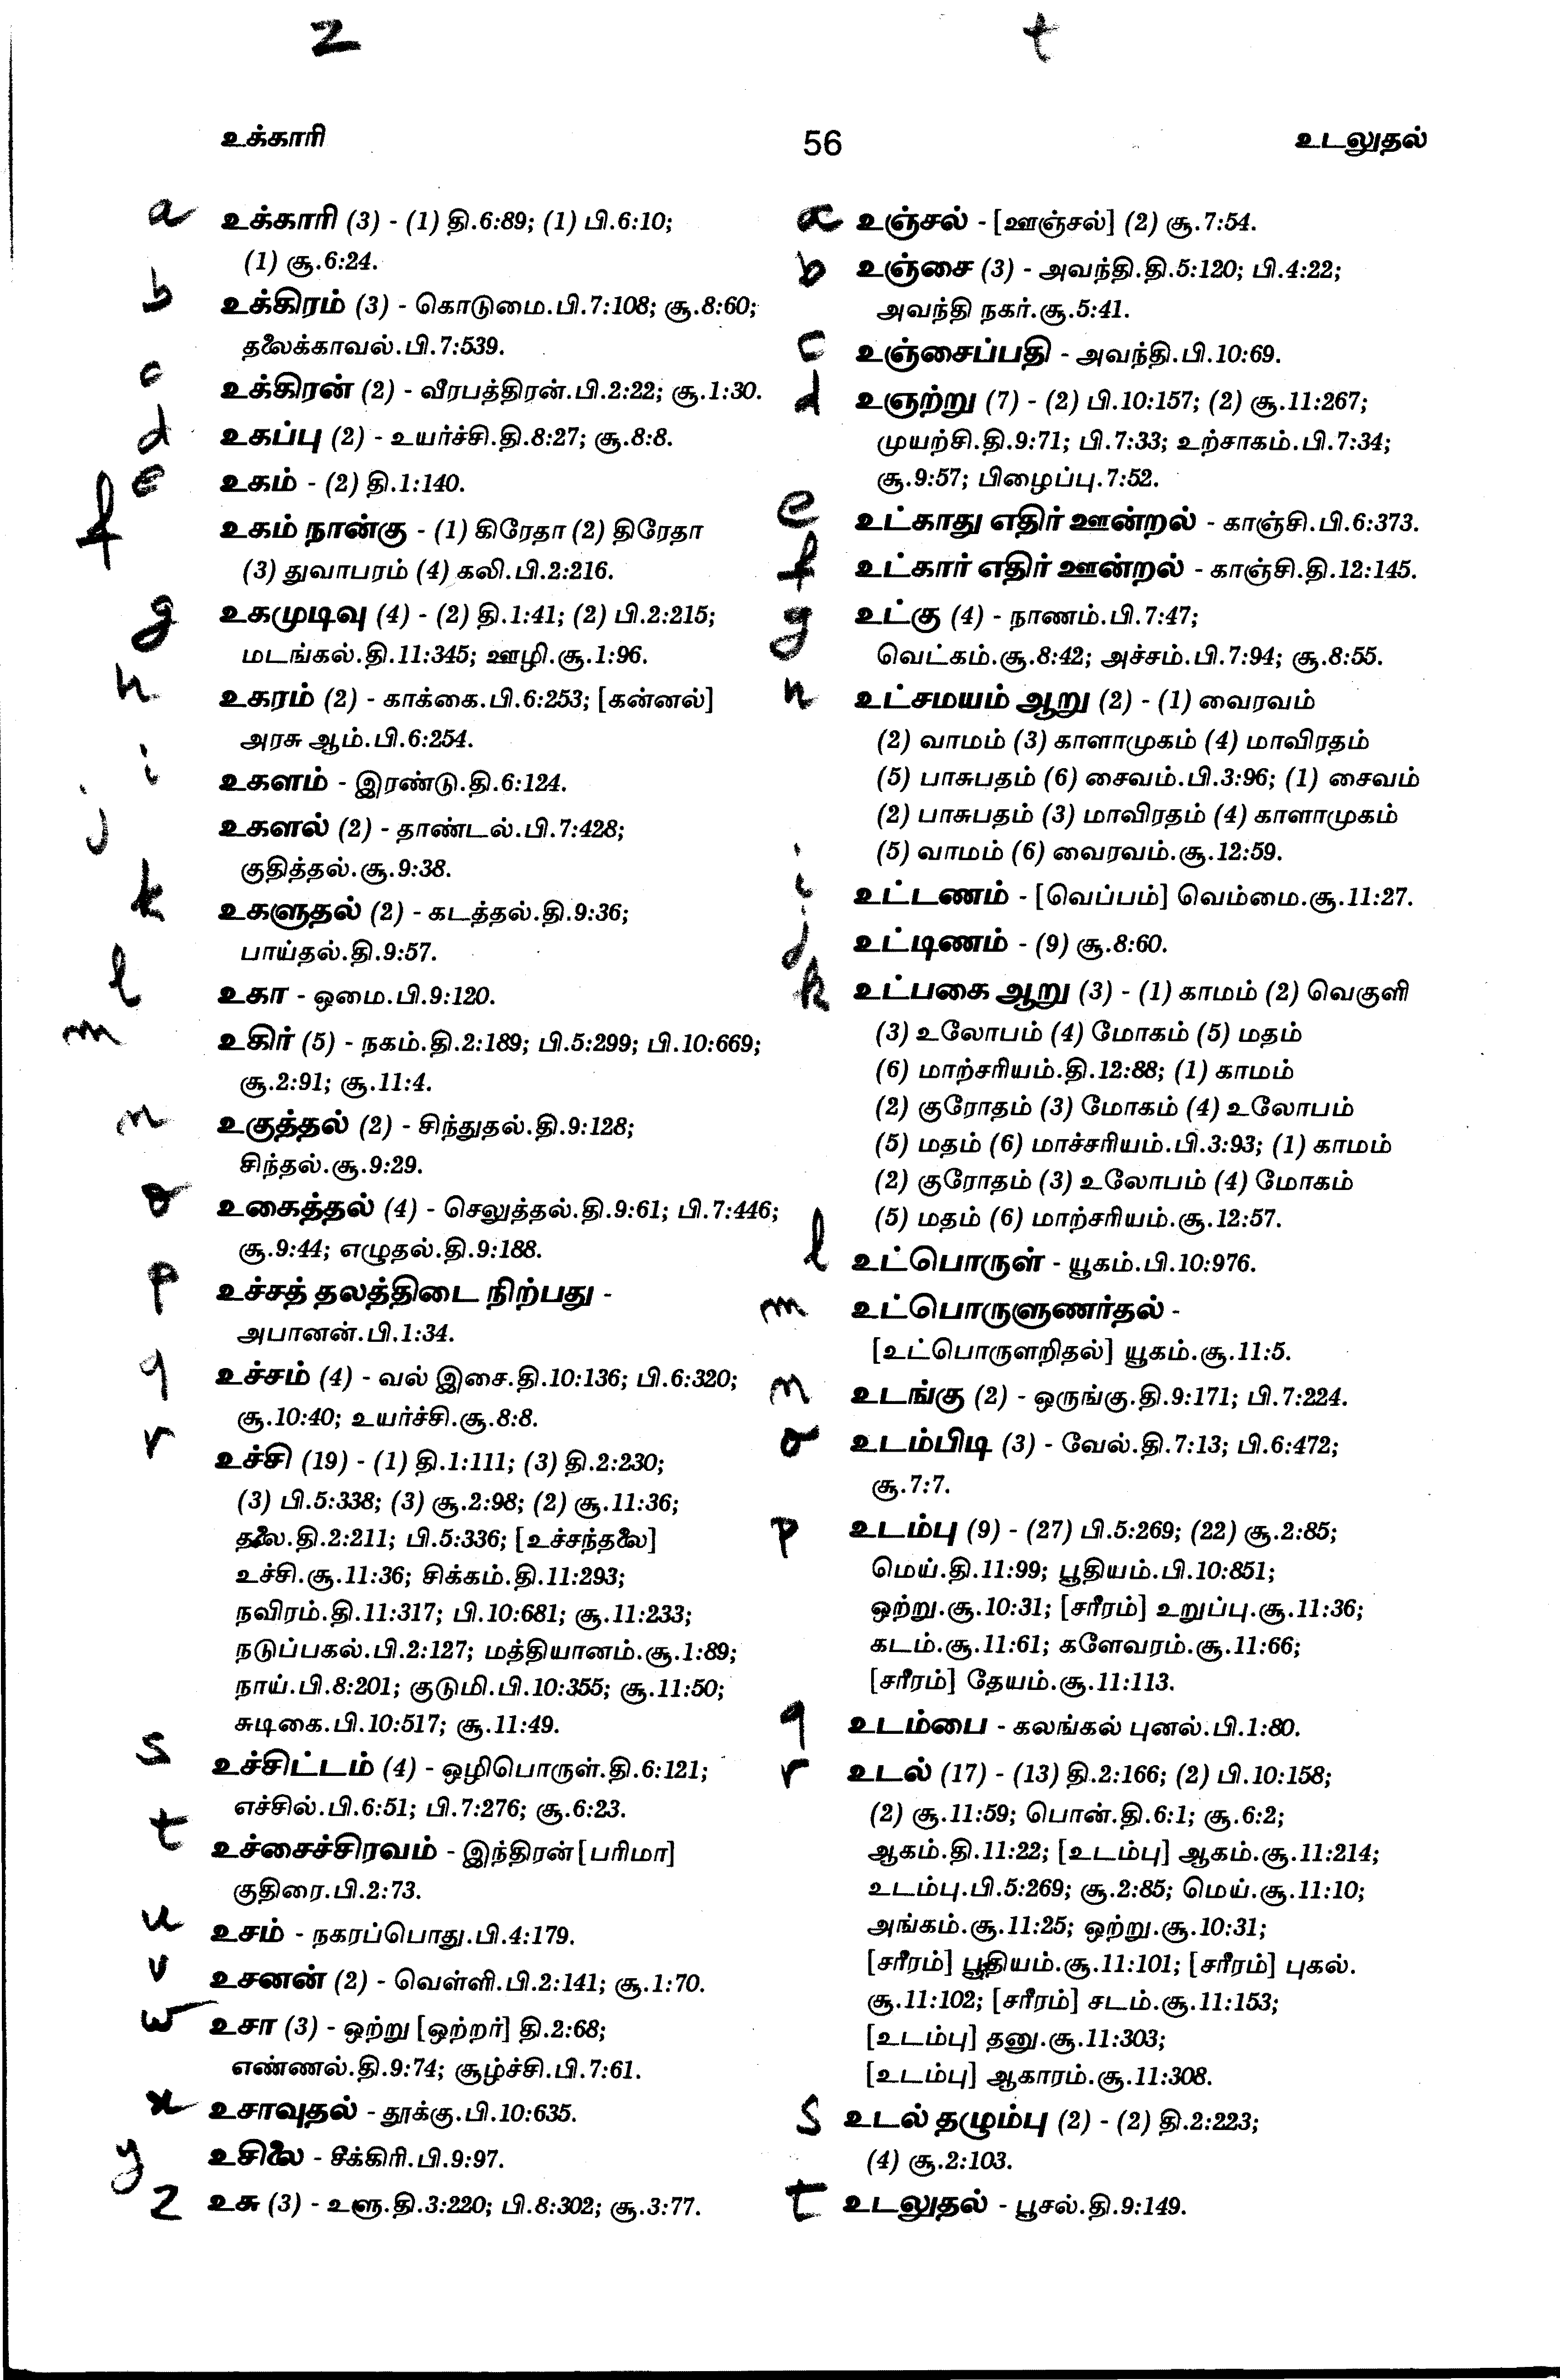 z
t
உக்காரி
56
உடலுதல்
a உக்காரி (3) - (1) தி.6:89; (1) பி.6:10;
(1) சூ.6:24.
b உக்கிரம் (3) - கொடுமை.பி.7:108; சூ.8:60;
தலைக்காவல்.பி.7:539.
c உக்கிரன் (2) - வீரபத்திரன்.பி.2:22; சூ.1:30.
d உகப்பு (2) - உயர்ச்சி.தி.8:27; சூ.8:8.
e உகம் - (2) தி.1:140.
f உகம் நான்கு - (1) கிரேதா (2) திரேதா
(3) துவாபரம் (4) கலி.பி.2:216.
g உகமுடிவு (4) - (2) தி.1:41; (2) பி.2:215;
மடங்கல்.தி.11:345; ஊழி.சூ.1:96.
h உகரம் (2) - காக்கை.பி.6:253; [கன்னல்]
அரசு ஆம்.பி.6:254.
i உகளம் - இரண்டு.தி.6:124.
j உகளல் (2) - தாண்டல்.பி.7:428;
குதித்தல்.சூ.9:38.
k உகளுதல் (2) - கடத்தல்.தி.9:36;
பாய்தல்.தி.9:57.
l உகா - ஒமை.பி.9:120.
m உகிர் (5) - நகம்.தி.2:189; பி.5:299; பி.10:669;
சூ.2:91; சூ.11:4.
n உகுத்தல் (2) - சிந்துதல்.தி.9:128;
சிந்தல்.சூ.9:29.
o உகைத்தல் (4) - செலுத்தல்.தி.9:61; பி.7:446;
சூ.9:44; எழுதல்.தி.9:188.
p உச்சத் தலத்திடை நிற்பது -
அபானன்.பி.1:34.
q உச்சம் (4) - வல் இசை.தி.10:136; பி.6:320;
சூ.10:40; உயர்ச்சி.சூ.8:8.
r உச்சி (19) - (1) தி.1:111; (3) தி.2:230;
(3) பி.5:338; (3) சூ.2:98; (2) சூ.11:36;
தலை.தி.2:211; பி.5:336; [உச்சந்தலை]
உச்சி.சூ.11:36; சிக்கம்.தி.11:293;
நவிரம்.தி.11:317; பி.10:681; சூ.11:233;
நடுப்பகல்.பி.2:127; மத்தியானம்.சூ.1:89;
நாய்.பி.8:201; குடுமி.பி.10:355; சூ.11:50;
சுடிகை.பி.10:517; சூ.11:49.
s உச்சிட்டம் (4) - ஒழிபொருள்.தி.6:121;
எச்சில்.பி.6:51; பி.7:276; சூ.6:23.
t உச்சைச்சிரவம் - இந்திரன் [பரிமா]
குதிரை.பி.2:73.
u உசம் - நகரப்பொது.பி.4:179.
v உசனன் (2) - வெள்ளி.பி.2:141; சூ.1:70.
w உசா (3) - ஒற்று [ஒற்றர்] தி.2:68;
எண்ணல்.தி.9:74; சூழ்ச்சி.பி.7:61.
x உசாவுதல் - தூக்கு.பி.10:635.
y உசிலை - சீக்கிரி.பி.9:97.
z உசு (3) - உளு.தி.3:220; பி.8:302; சூ.3:77.
a உஞ்சல் - [ஊஞ்சல்] (2) சூ.7:54.
b உஞ்சை (3) - அவந்தி.தி.5:120; பி.4:22;
அவந்தி நகர்.சூ.5:41.
c உஞ்சைப்பதி - அவந்தி.பி.10:69.
d உஞற்று (7) - (2) பி.10:157; (2) சூ.11:267;
முயற்சி.தி.9:71; பி.7:33; உற்சாகம்.பி.7:34;
சூ.9:57; பிழைப்பு.7:52.
e உட்காது எதிர் ஊன்றல் - காஞ்சி.பி.6:373.
f உட்கார் எதிர் ஊன்றல் - காஞ்சி.தி.12:145.
g உட்கு (4) - நாணம்.பி.7:47;
வெட்கம்.சூ.8:42; அச்சம்.பி.7:94; சூ.8:55.
h உட்சமயம் ஆறு (2) - (1) வைரவம்
(2) வாமம் (3) காளாமுகம் (4) மாவிரதம்
(5) பாசுபதம் (6) சைவம்.பி.3:96; (1) சைவம்
(2) பாசுபதம் (3) மாவிரதம் (4) காளாமுகம்
(5) வாமம் (6) வைரவம்.சூ.12:59.
i உட்டணம் - [வெப்பம்] வெம்மை.சூ.11:27.
j உட்டிணம் - (9) சூ.8:60.
k உட்பகை ஆறு (3) - (1) காமம் (2) வெகுளி
(3) உலோபம் (4) மோகம் (5) மதம்
(6) மாற்சரியம்.தி.12:88; (1) காமம்
(2) குரோதம் (3) மோகம் (4) உலோபம்
(5) மதம் (6) மாச்சரியம்.பி.3:93; (1) காமம்
(2) குரோதம் (3) உலோபம் (4) மோகம்
(5) மதம் (6) மாற்சரியம்.சூ.12:57.
l உட்பொருள் - யூகம்.பி.10:976.
m உட்பொருளுணர்தல் -
[உட்பொருளறிதல்] யூகம்.சூ.11:5.
n உடங்கு (2) - ஒருங்கு.தி.9:171; பி.7:224.
o உடம்பிடி (3) - வேல்.தி.7:13; பி.6:472;
சூ.7:7.
p உடம்பு (9) - (27) பி.5:269; (22) சூ.2:85;
மெய்.தி.11:99; பூதியம்.பி.10:851;
ஒற்று.சூ.10:31; [சரீரம்] உறுப்பு.சூ.11:36;
கடம்.சூ.11:61; களேவரம்.சூ.11:66;
[சரீரம்] தேயம்.சூ.11:113.
q உடம்பை - கலங்கல் புனல்.பி.1:80.
r உடல் (17) - (13) தி.2:166; (2) பி.10:158;
(2) சூ.11:59; பொன்.தி.6:1; சூ.6:2;
ஆகம்.தி.11:22; [உடம்பு] ஆகம்.சூ.11:214;
உடம்பு.பி.5:269; சூ.2:85; மெய்.சூ.11:10;
அங்கம்.சூ.11:25; ஒற்று.சூ.10:31;
[சரீரம்] பூதியம்.சூ.11:101; [சரீரம்] புகல்.
சூ.11:102; [சரீரம்] சடம்.சூ.11:153;
[உடம்பு] தனு.சூ.11:303;
[உடம்பு] ஆகாரம்.சூ.11:308.
s உடல் தழும்பு (2) - (2) தி.2:223;
(4) சூ.2:103.
t உடலுதல் - பூசல்.தி.9:149.